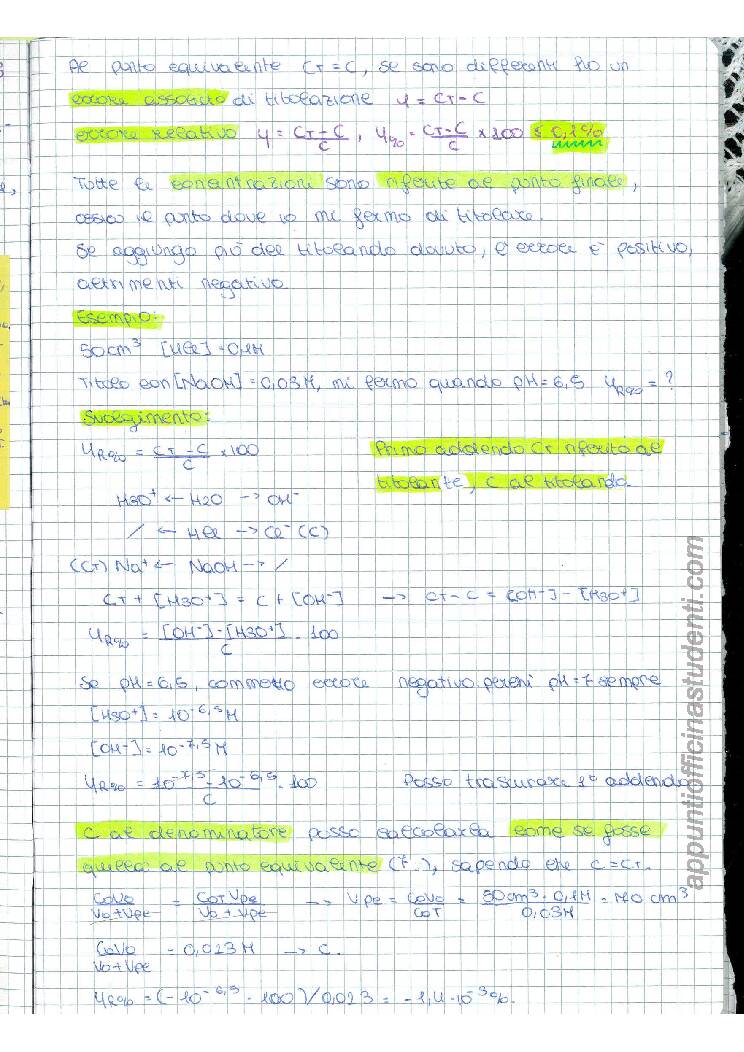 Al punto equivalente CT = C, se sono differenti ho un
errore assoluto di titolazione Ч = CT - C
errore relativo Ч = CT - C / C , Ч% = CT - C / C × 100 ≤ 0,1%
Tutte le concentrazioni sono riferite al punto finale,
ossia il punto dove io mi fermo di titolare.
Se aggiungo più del titolando dovuto, l'errore è positivo,
altrimenti negativo.
Esempio:
50 cm³ [HCl] = 0,1M
Titolo con [NaOH] = 0,03M, mi fermo quando pH = 6,5 ЧR% = ?
Svolgimento:
ЧR% = CT - C / C × 100
Primo addendo CT riferito al
titolante, C al titolando.
H3O⁺ ← H2O → OH⁻
/ ← HCl → Cl⁻ (C)
(CT) Na⁺ ← NaOH → /
CT + [H3O⁺] = C + [OH⁻] → CT - C = [OH⁻] - [H3O⁺]
ЧR% = [OH⁻] - [H3O⁺] / C · 100
Se pH = 6,5, commetto errore negativo perchi pH = 7 sempre
[H3O⁺] = 10^-6,5 M
[OH⁻] = 10^-7,5 M
ЧR% = 10^-7,5 - 10^-6,5 / C · 100 Posso trascurare 1° addendo
C al denominatore posso calcolarla come se fosse
quella al punto equivalente (7.), sapendo che C = CT.
C0V0 / V0 + Vpe = C0T Vpe / V0 + Vpe → Vpe = C0V0 / C0T = 50 cm³ · 0,1M / 0,03M = 170 cm³
C0V0 / V0 + Vpe = 0,023 M → C.
ЧR% = (-10^-6,5 · 100) / 0,023 = -1,4 · 10^-3 %.
appuntiofficinastudenti.com